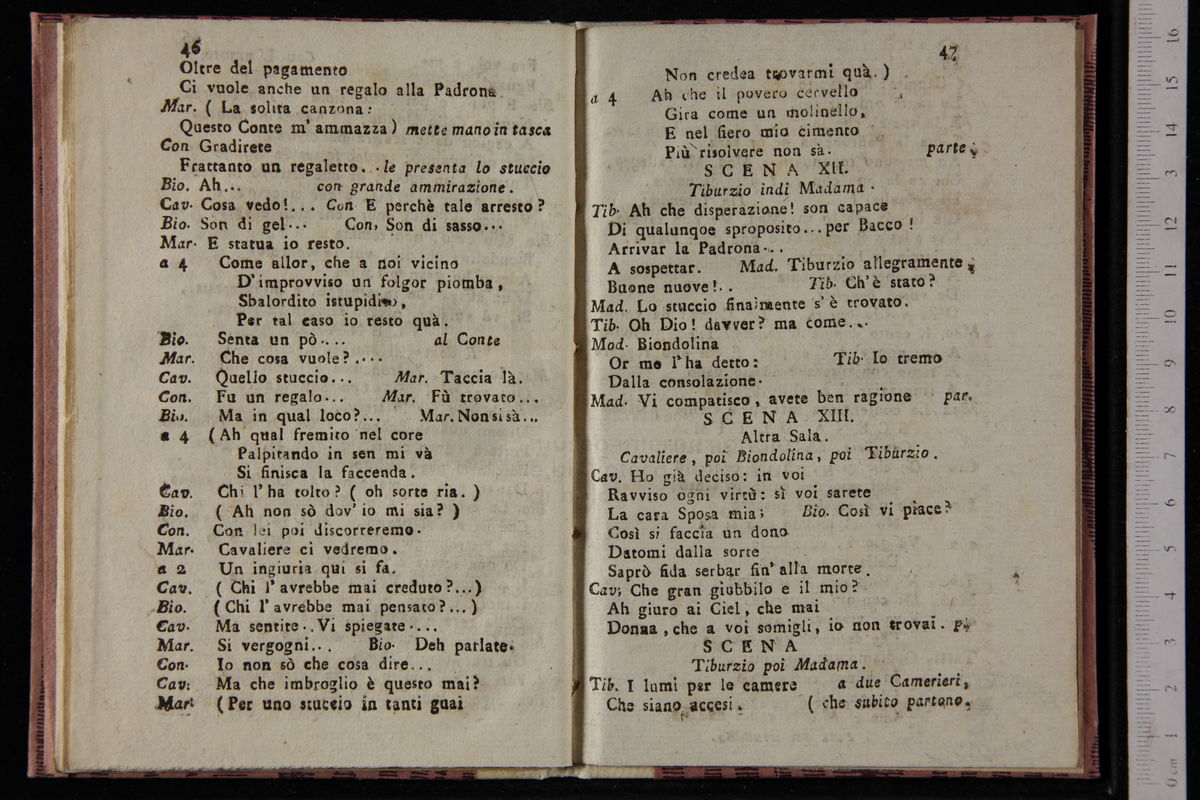 46
Oltre del pagamento
Ci vuole anche un regalo alla Padrona
Mar. ( La solita canzona:
Questo Conte m' ammazza ) mette mano in tasca
Con Gradirete
Frattanto un regaletto.. le presenta lo stuccio
Bio. Ah... con grande ammirazione.
Cav. Cosa vedo!... Con E perchè tale arresto?
Bio. Son di gel... Con, Son di sasso...
Mar. E statua io resto.
a 4 Come allor, che a noi vicino
D' improvviso un folgor piomba,
Sbalordito istupidito,
Per tal caso io resto quà.
Bio. Senta un pò.... al Conte
Mar. Che cosa vuole?....
Cav. Quello stuccio... Mar. Taccia là.
Con. Fu un regalo... Mar. Fù trovato...
Bio. Ma in qual loco?... Mar. Non si sà...
a 4 (Ah qual fremito nel core
Palpitando in sen mi và
Si finisca la faccenda.
Cav. Chi l' ha tolto? ( oh sorte ria. )
Bio. ( Ah non sò dov' io mi sia? )
Con. Con lei poi discorreremo.
Mar. Cavaliere ci vedremo.
a 2 Un ingiuria qui si fa.
Cav. ( Chi l' avrebbe mai creduto?...)
Bio. ( Chi l' avrebbe mai pensato?...)
Cav. Ma sentite.. Vi spiegate....
Mar. Si vergogni... Bio. Deh parlate.
Con. Io non sò che cosa dire...
Cav: Ma che imbroglio è questo mai?
Mar. (Per uno stuccio in tanti guai
47
Non credea trovarmi quà. )
a 4 Ah che il povero cervello
Gira come un molinello,
E nel fiero mio cimento
Più risolvere non sà. parte.
SCENA XII.
Tiburzio indi Madama.
Tib. Ah che disperazione! son capace
Di qualunqoe sproposito... per Bacco!
Arrivar la Padrona...
A sospettar. Mad. Tiburzio allegramente;
Buone nuove!.. Tib. Ch' è stato?
Mad. Lo stuccio finalmente s' è trovato.
Tib. Oh Dio! davver? ma come...
Mad. Biondolina
Or me l' ha detto: Tib. Io tremo
Dalla consolazione.
Mad. Vi compatisco, avete ben ragione par.
SCENA XIII.
Altra Sala.
Cavaliere, poi Biondolina, poi Tiburzio.
Cav. Ho già deciso: in voi
Ravviso ogni virtù: sì voi sarete
La cara Sposa mia; Bio. Così vi piace?
Così si faccia un dono
Datomi dalla sorte
Saprò fida serbar fin' alla morte.
Cav; Che gran giubbilo e il mio?
Ah giuro ai Ciel, che mai
Donna, che a voi somigli, io non trovai. p.
SCENA
Tiburzio poi Madama.
Tib. I lumi per le camere a due Camerieri,
Che siano accesi. ( che subito partono.